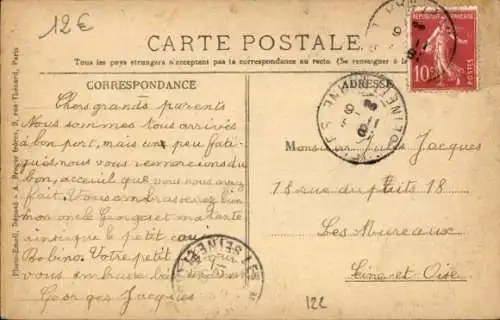 12€
CARTE POSTALE
Tous les pays étrangers n'acceptent pas la correspondance au recto. (Se renseigner à la
REPUBLIQUE FRANÇAISE
10c
POSTES
CORRESPONDANCE
ADRESSE
Chers grands parents
Nous sommes tous arrivés
à bon port, mais un peu fati-
gués nous vous remercions du
bon, acceuil que vous nous avez
fait. Vous embrasserez bien
mon oncle Georges et ma tante
ainsique le petit
Bobino. Votre petit
vous embrasse bien
Georges Jacques
Monsieur Jules Jacques
18 rue du puits 18
Les Mureaux
Seine-et-Oise
12€